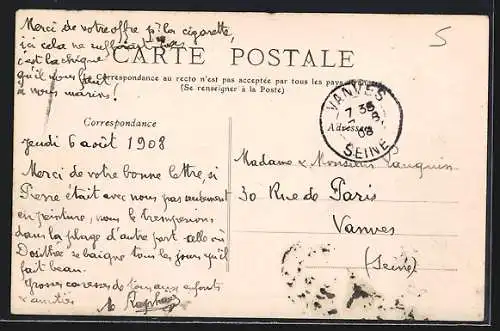 Merci de votre offre pr la cigarette,
ici cela ne suffirait pas
c'est la chique
qu'il nous faut
à nous marins!
CARTE POSTALE
La Correspondance au recto n'est pas acceptée par tous les pays
(Se renseigner à la Poste)
5
Correspondance
Adresse
VANVES
7 35
7 -8
08
SEINE
Jeudi 6 août 1908
Merci de votre bonne lettre, si
Pierre était avec nous pas seulement
en peinture, nous le tremperions
dans la plage d'autre part celle où
Dosithée se baigne tous les jours qu'il
fait beau.
Grosses caresses de tous aux enfants
& amitiés
Madame & Monsieur Vauquin
30 Rue de Paris
Vanves
(Seine)